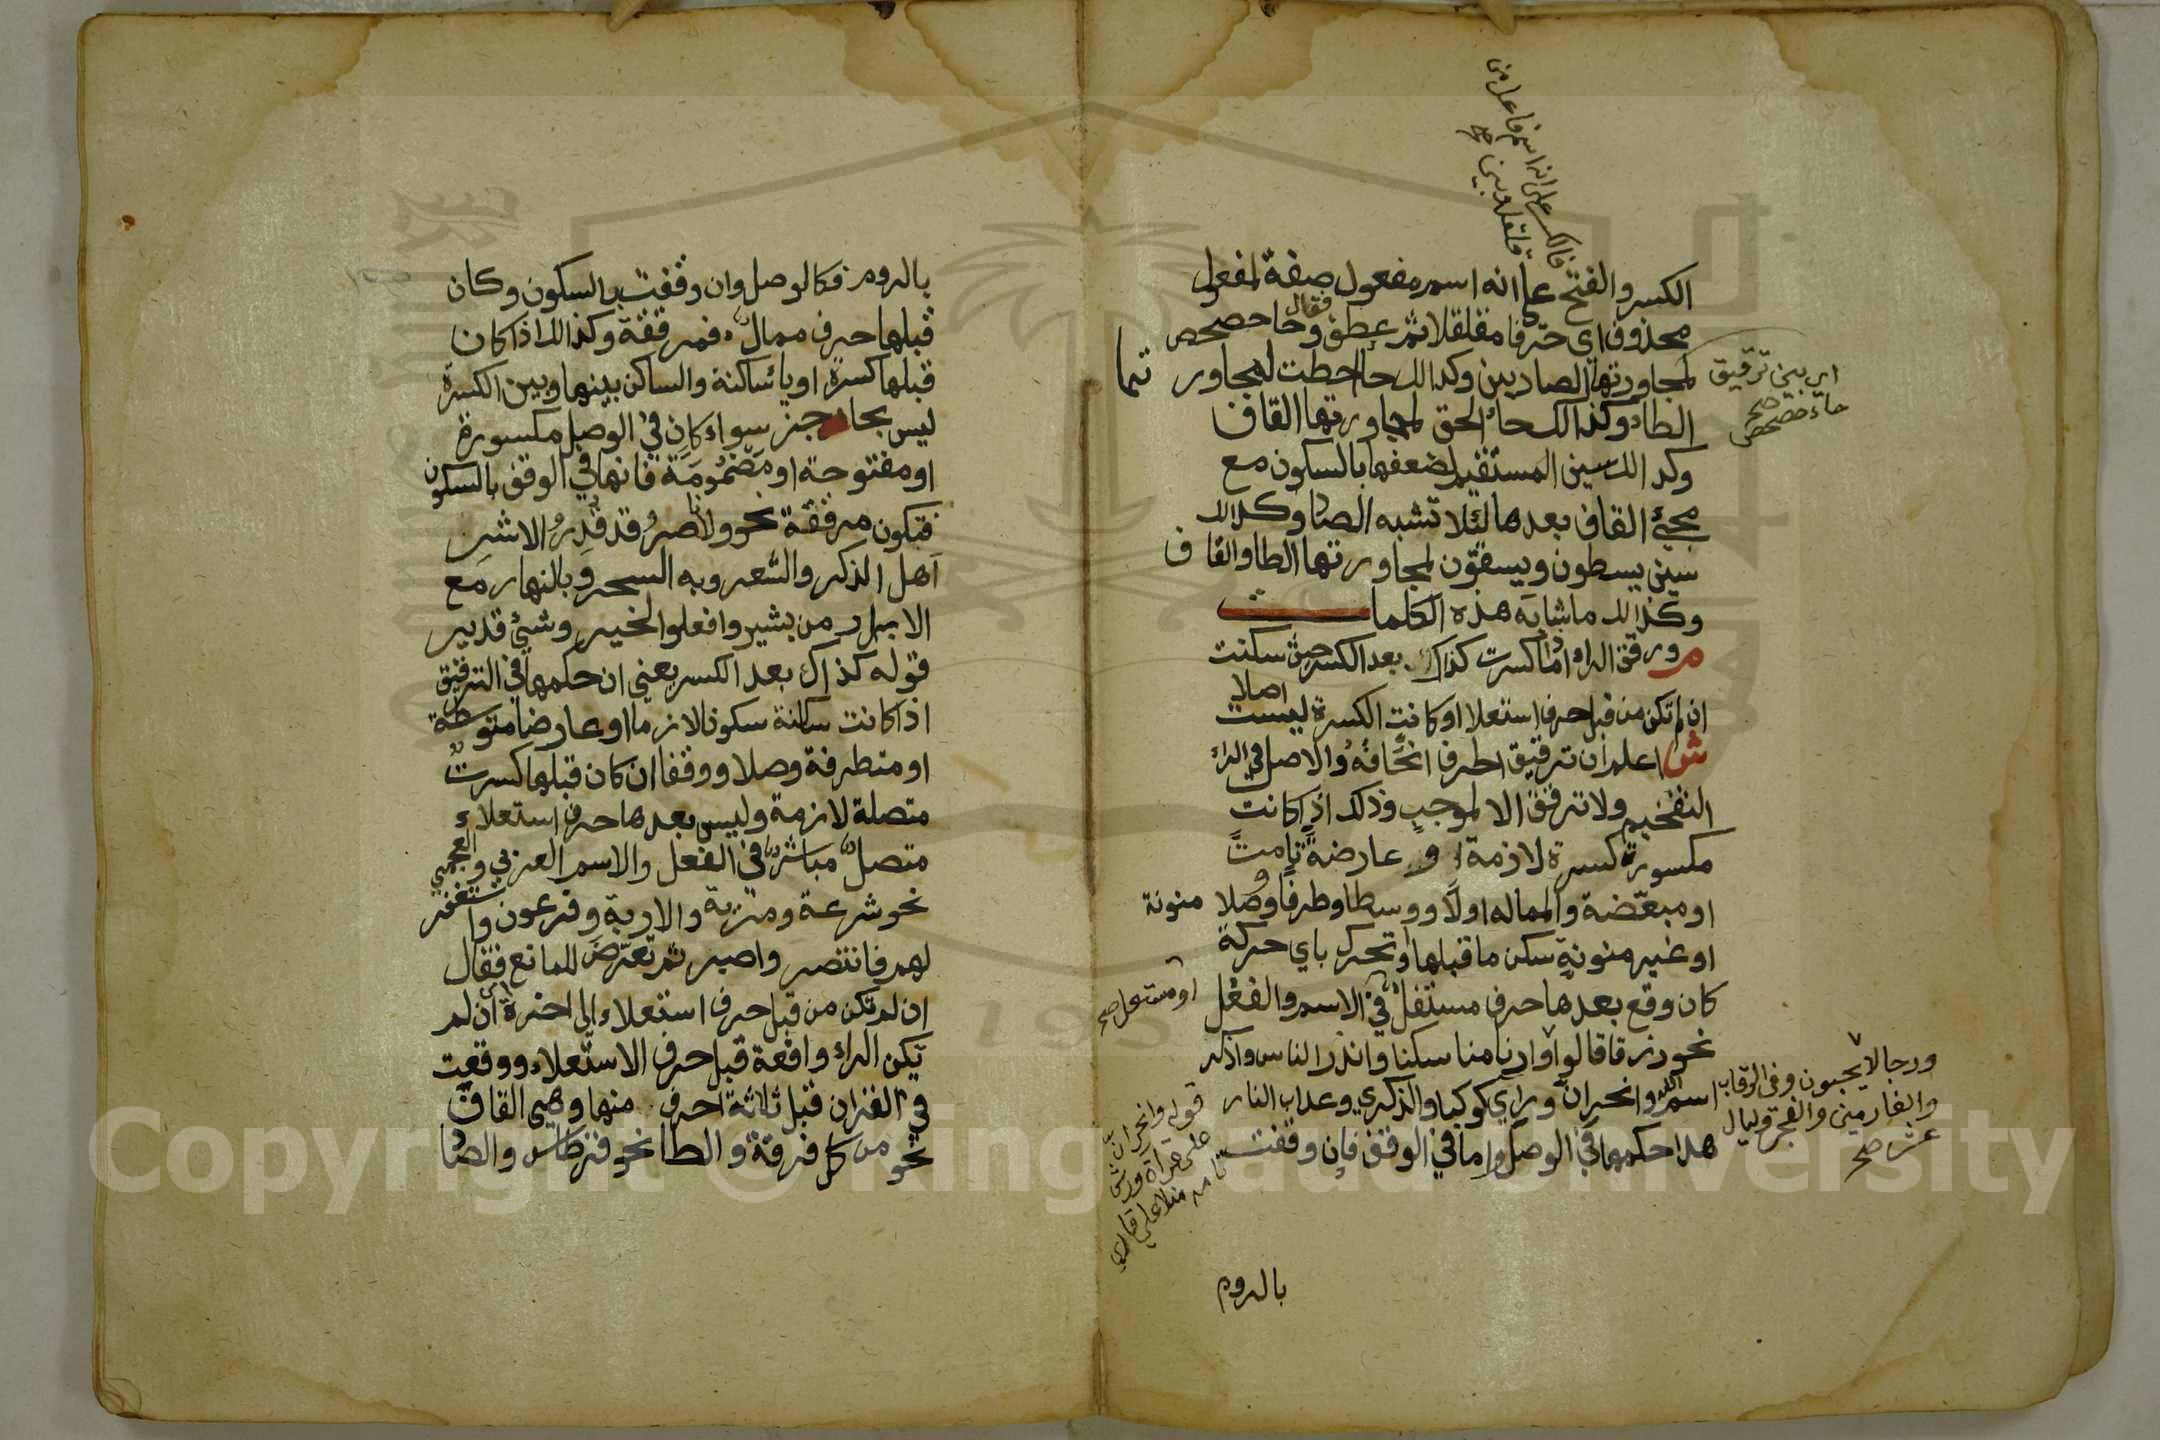 فالكسر على انه اسم فاعل من
قلقل وبين صح
الكسر والفتح على انه اسم مفعول صفة لمفعول
محذوف اى حرفا مقلقلا ثم عطف وحا حصحص
فقال
لمجاورتها الصادين وكذالك حا احطت لمجاور تها
اى بين ترقيق
حاء حصحص صح
الطاء وكذالك حاء الحق لمجاورتها القاف
وكذالك سين المستقيم لضعفها بالسكون مع
مجئ القاف بعدها لئلا تشبه الصاد وكذالك
سين يسطون ويسقون لمجاورتها الطا والقاف
وكذالك ما شابه هذه الكلمات
م ورقق الراء اذا ما كسرت كذاك بعد الكسر حيث سكنت
ان لم تكن من قبل حرف استعلا او كانت الكسرة ليست
اصلا
ش اعلم ان ترقيق الحرف انحافه والاصل في الراء
التفخيم ولا ترقق الا لموجب وذلك اذا كانت
مكسورة كسرة لازمة او عارضة تامت
او مبعضة والممالة اولا ووسطا وطرفا وصلا منونة
او غير منونة سكن ما قبلها او تحرك باي حركة
كان وقع بعدها حرف مستفل في الاسم والفعل
او مستعل صح
نحو رزقا قالوا وارنا مناسكنا وانذر الناس واذكر
اسم الله وانحر ان وراي كوكبا والذكري وعذاب النار
ورجالا يحبون وفي الرقاب
والغارمين والفجر وليال
عشر صح
هذا حكمها في الوصل واما في الوقف فان وقفت
قوله وانحر ان
على قراءة ورش
منلا على قارى
بالروم
بالروم فكالوصل وان وقفت بالسكون وكان
قبلها حرف ممال فمرققة وكذالك اذا كان
قبلها كسرة او يا ساكنة والساكن بينهما وبين الكسرة
ليس بحاجز سواء كان في الوصل مكسورة
او مفتوحة او مضمومة فانها في الوقف بالسكون
فتكون مرققة نحو ولا ناصر قد قدر الاشر
اهل الذكر والشعر وبه السحر وبالنهار مع
الابرار من بشير وافعلوا الخير وشئ قدير
قوله كذاك بعد الكسر يعني ان حكمها في الترقيق
اذا كانت ساكنة سكونا لازما او عارضا متوسطة
او متطرفة وصلا ووقفا ان كان قبلها كسرت
متصلة لازمة وليس بعدها حرف استعلاء
متصل مباشر في الفعل والاسم العربي والعجمي
نحو شرعة ومرية والاربة وفرعون واستغفر
لهم فانتصر واصبر ثم تعرض للمانع فقال
ان لم تكن من قبل حرف استعلاء الى اخره اى ان لم
تكن الراء واقعة قبل حرف الاستعلاء ووقعت
في القران قبل ثلاثة احرف منها وهي القاف
نحو من كل فرقة والطا نحو قرطاس والصاد
Copyright © King Saud University